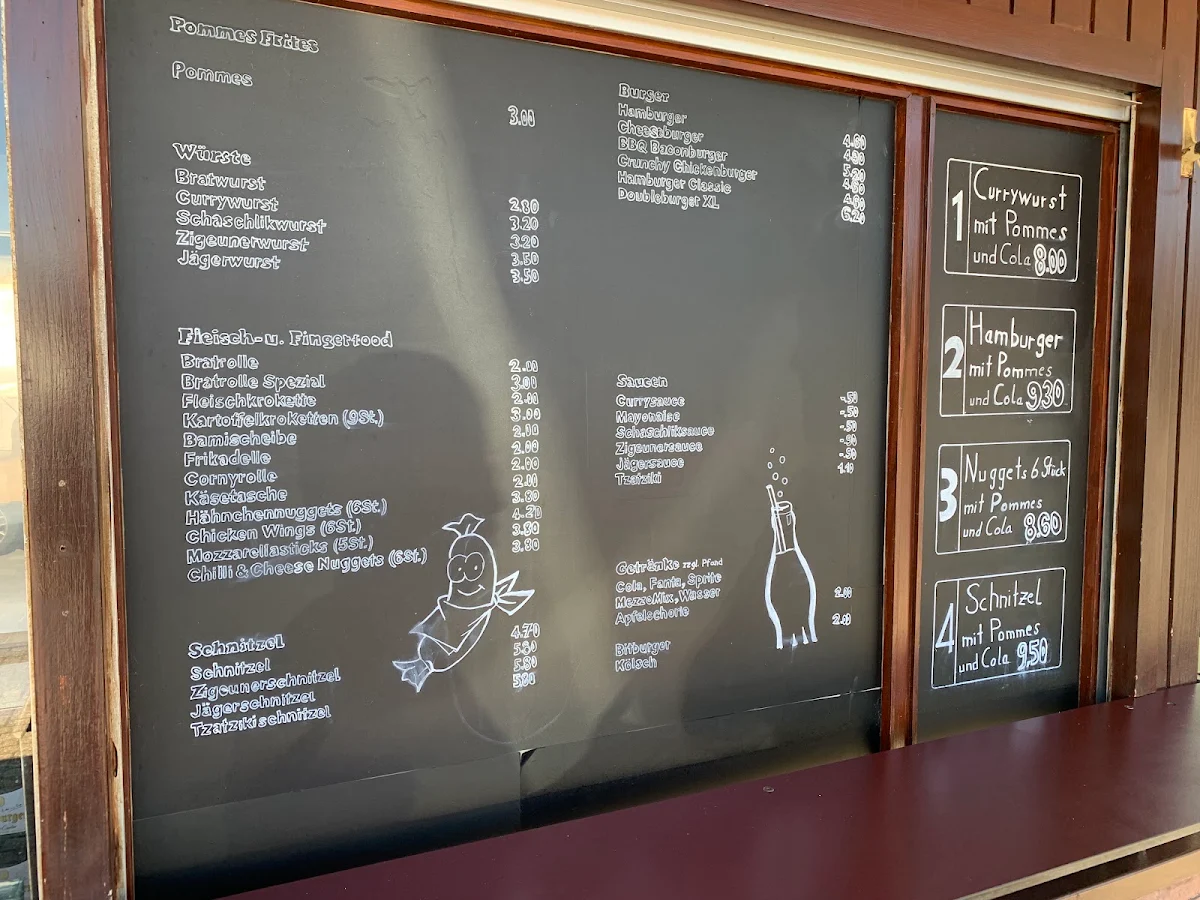 Pommes Frites
Pommes 3.00
Würste
Bratwurst 2.80
Currywurst 3.20
Schaschlikwurst 3.20
Zigeunerwurst 3.50
Jägerwurst 3.50
Fleisch-u. Fingerfood
Bratrolle
Bratrolle Spezial
Fleischkrokette
Kartoffelkroketten (9St.)
Bamischeibe
Frikadelle
Cornyrolle
Käsetasche
Hähnchennuggets (6St.)
Chicken Wings (6St.)
Mozzarellasticks (5St.)
Chilli & Cheese Nuggets (6St.)
Schnitzel
Schnitzel 4.70
Zigeunerschnitzel
Jägerschnitzel 5.80
Tzatzikischnitzel
Burger
Hamburger
Cheeseburger
BBQ Baconburger
Crunchy Chickenburger
Hamburger Classic
Doubleburger XL 6.20
Saucen
Currysauce -.50
Mayonaise -.50
Schaschliksauce -.50
Zigeunersauce
Jägersauce
Tzatziki
Getränke zzgl. Pfand
Cola, Fanta, Sprite
MezzoMix, Wasser
Apfelschorle
Bitburger
Kölsch
1 Currywurst
mit Pommes
und Cola 8.00
2 Hamburger
mit Pommes
und Cola 9.30
3 Nuggets 6 Stück
mit Pommes
und Cola 8.60
4 Schnitzel
mit Pommes
und Cola 9,50